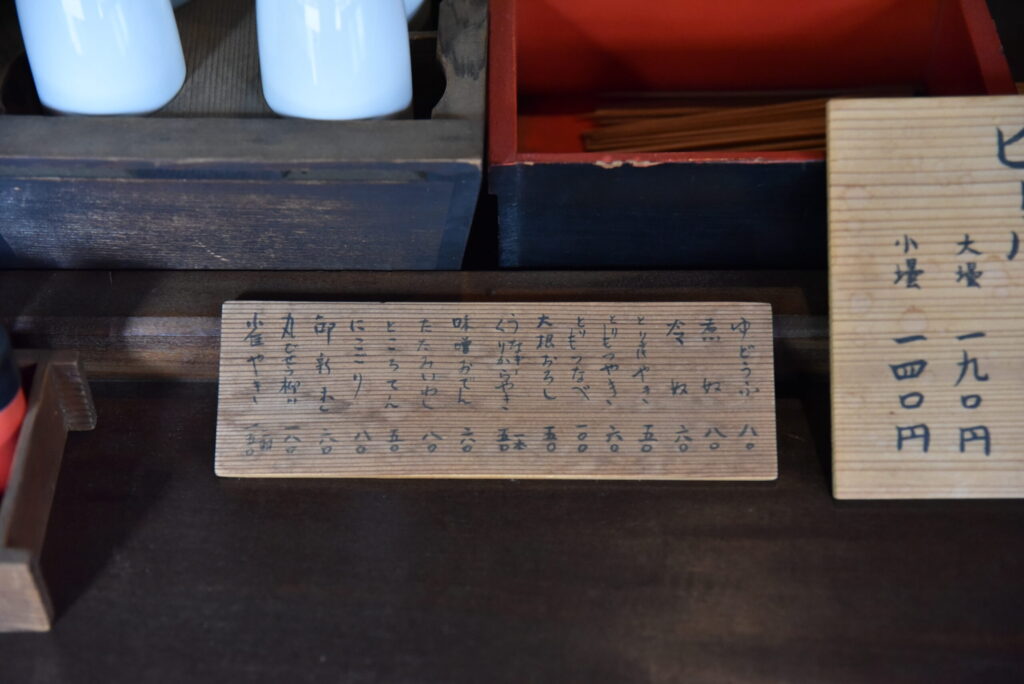 ビール
大壜 一九〇円
小壜 一四〇円
ゆどうふ 八〇
煮奴 八〇
冷奴 六〇
とり皮やき 五〇
とりもつやき 六〇
とりもつなべ 一〇〇
大根おろし 五〇
うなぎくりからやき 一本五〇
味噌おでん 六〇
たたみいわし 八〇
ところてん 五〇
にこごり 八〇
六〇
一八〇
雀やき